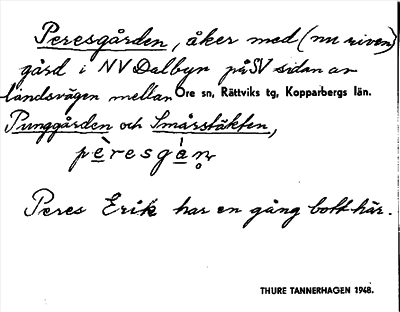 Peresgården, åker med (nu riven)
gård i NV Dalbyn på SV sidan av
landsvägen mellan Ore sn, Rättviks tg, Kopparbergs län.
Punggården och Smårstäkten,
pèresgàṇ
Peres Erik har en gång bott här.
THURE TANNERHAGEN 1948.